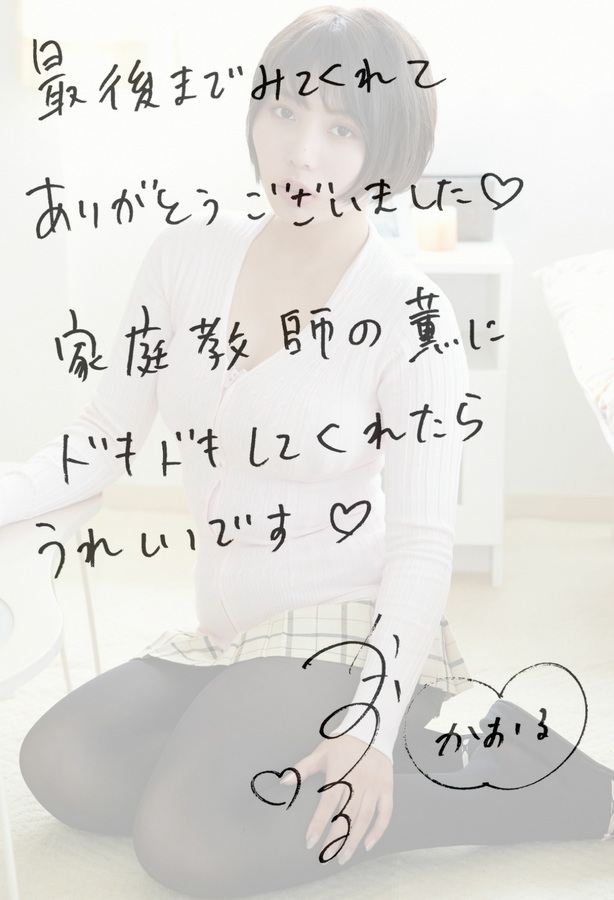 最後までみてくれて
ありがとうございました♡
家庭教師の薫に
ドキドキしてくれたら
うれしいです♡
かおる
♡
かおる